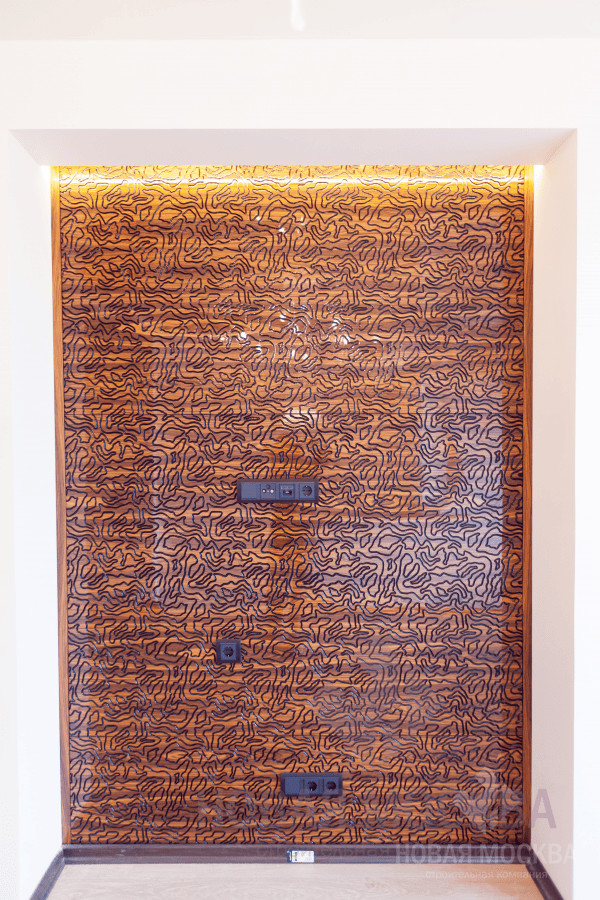 НОВАЯ МОСКВА
строительная компания